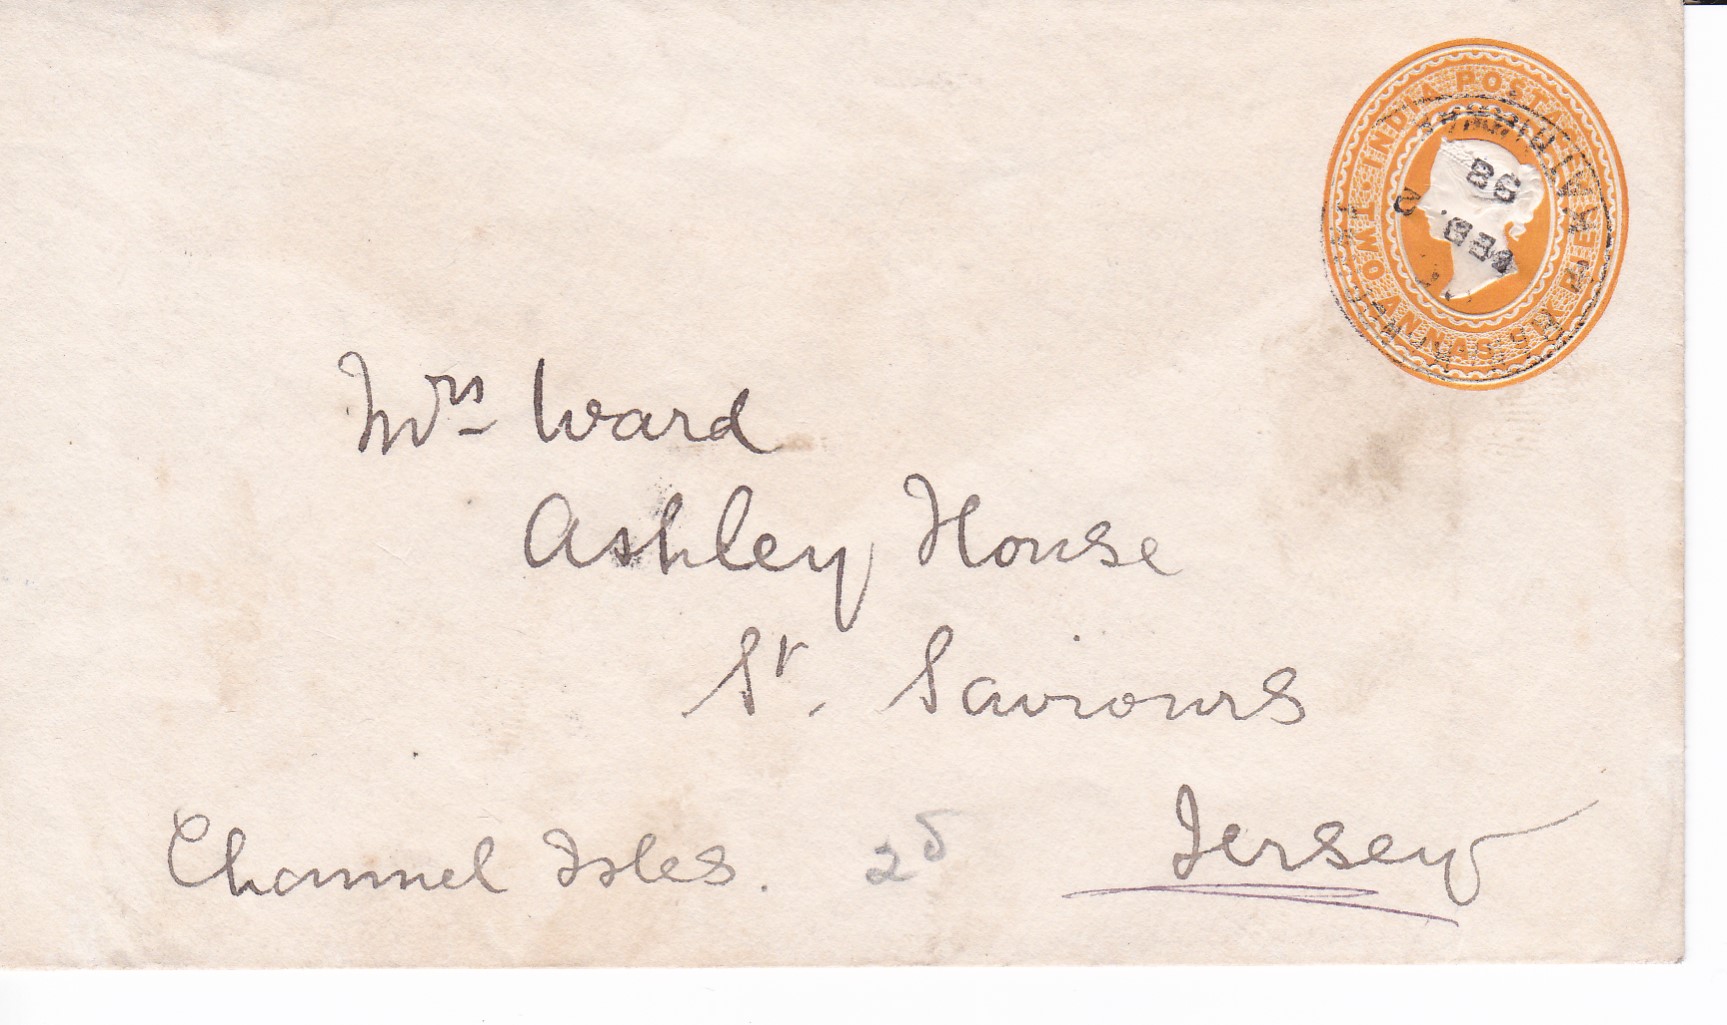 INDIA POSTAGE
TWO ANNAS SIX PIES
2
FEB.
98
Mrs Ward
Ashley House
St. Saviours
Jersey
Channel Isles.
2d